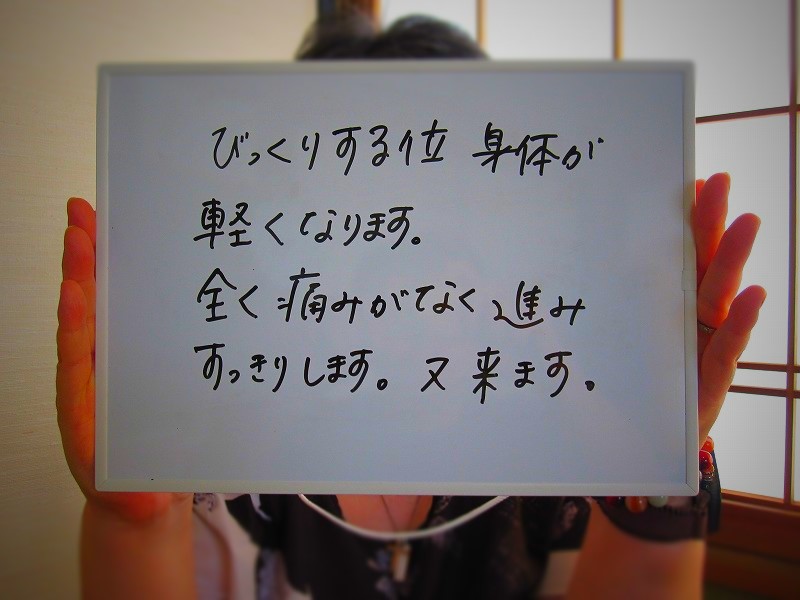 びっくりする位 身体が
軽くなります。
全く痛みがなく進み
すっきりします。又来ます。